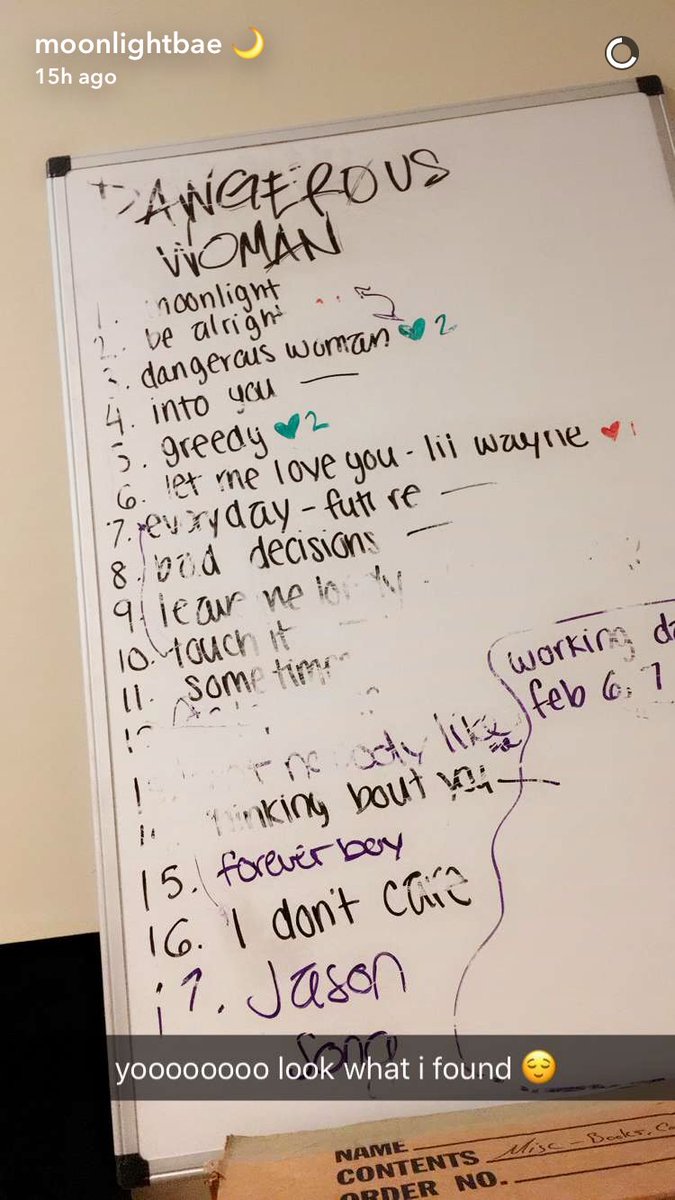 moonlightbae 🌙
15h ago
DANGEROUS
WOMAN
1. moonlight
2. be alright
3. dangerous woman 2
4. into you
5. greedy 2
6. let me love you - lil wayne 1
7. everyday - future
8. bad decisions
9. leave me lonely
10. touch it
11. sometimes
nobody like
thinking bout you
15. forever boy
16. I don't care
17. Jason
song
working
feb 6, 7
yoooooooo look what i found 😌
NAME Misc - Books,
CONTENTS
ORDER NO.